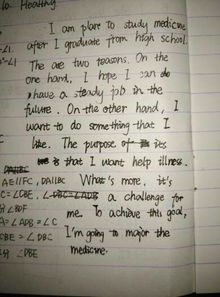 10. Healthy
I am plare to study medicine
after I graduate from high school.
The are two reasons. On the
one hand, I hope I can do
have a steady job in the
future. On the other hand, I
want to do something that I
like. The purpose of its
is that I want help illness.
AE∥FC, DA∥BC What's more, it's
C=∠DBE, a challenge for
∠BDF me. To achieve this goal,
A=∠ADB=∠C I'm going to major the
CBE=∠DBC medicine.
∠DBE